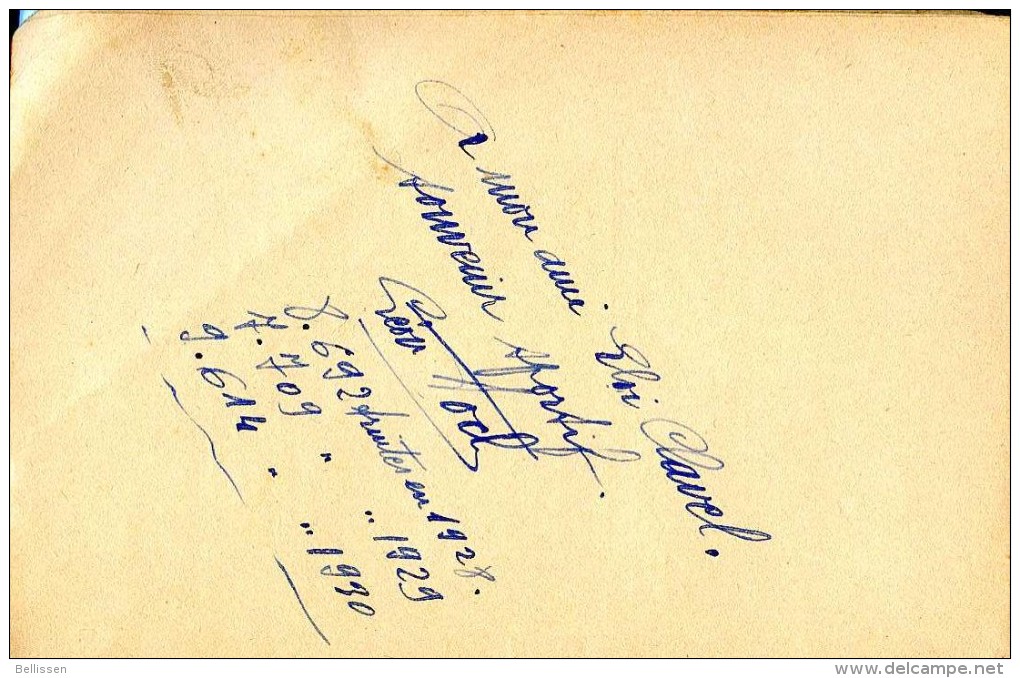 A mon ami Eloi Clavel.
souvenir sportif.
Léon Hoch
8.692 truites en 1928.
7.709 " " 1929
9.614 " " 1930
Bellissen
delcampe.net